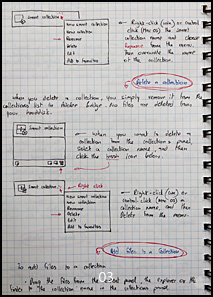 Smart collection
New smart collection
New collection
Rename
Delete
Edit
Add to favorites
Right-click (win) or control
click (mac OS) the smart
collection name and choose
Rename from the menu.
Then overwrite the name
of the collection.
Delete a collection
when you delete a collection, you simply remove it from the
collections list in Adobe Bridge. No files are deleted from
your hard disk.
Smart collection
when you want to delete a
collection from the collection's panel,
Select a collection name, and then
click the trash icon below.
Smart collection
Right click
New smart collection
New collection
Rename
Delete
Edit
Add to favorites
Right-click (win) or
control click (mac OS) a
collection name and then
Delete from the menu.
Add files to a collection
To add files to a collection
Drag the files from the content panel, the explorer or the
finder to the collection name in the collections panel.
03